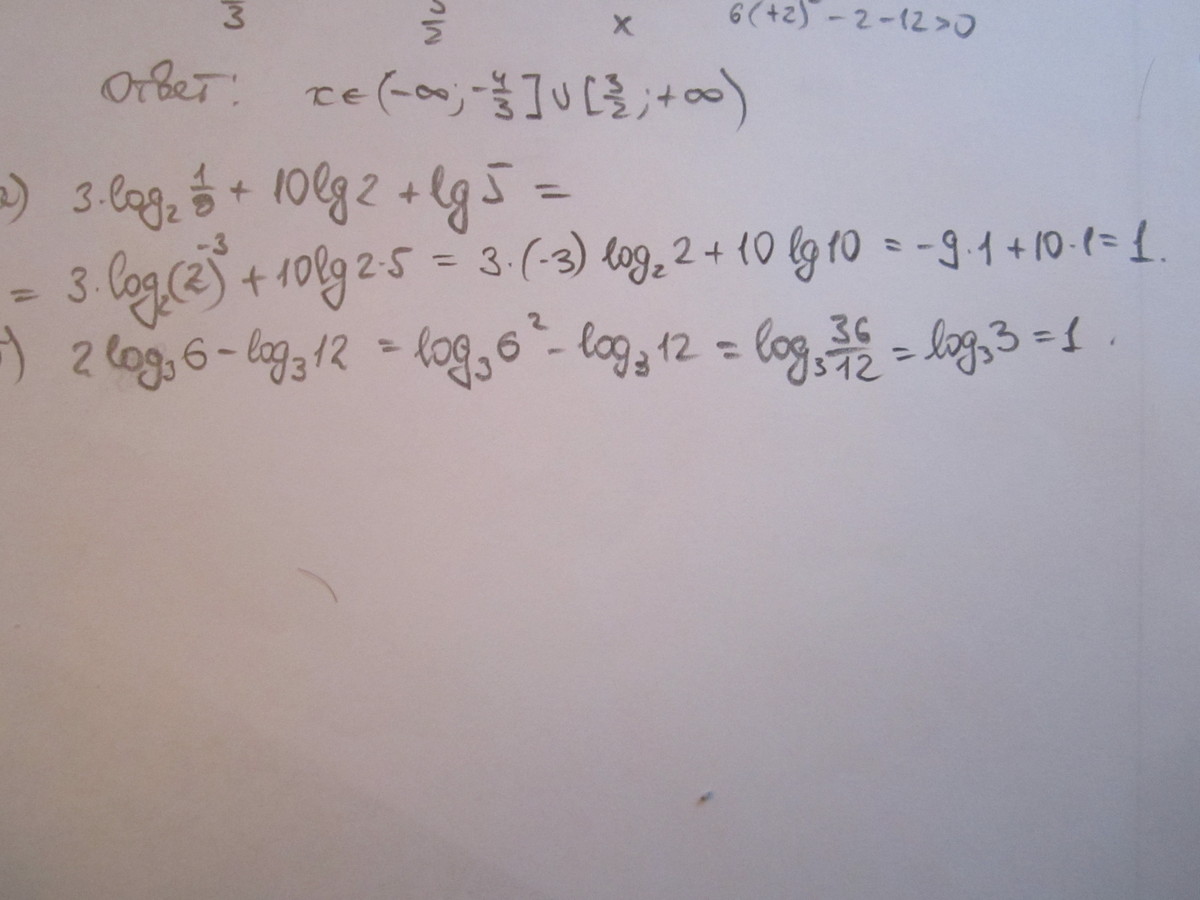 3 3/2 x 6(+2)² - 2 - 12 > 0
Ответ: x ∈ (-∞; -4/3] ∪ [3/2; +∞)
) 3·log₂ 1/8 + 10lg2 + lg5 =
= 3·log₂(2)⁻³ + 10lg2·5 = 3·(-3) log₂2 + 10 lg10 = -9·1 + 10·1 = 1.
) 2log₃6 - log₃12 = log₃6² - log₃12 = log₃ 36/12 = log₃3 = 1.